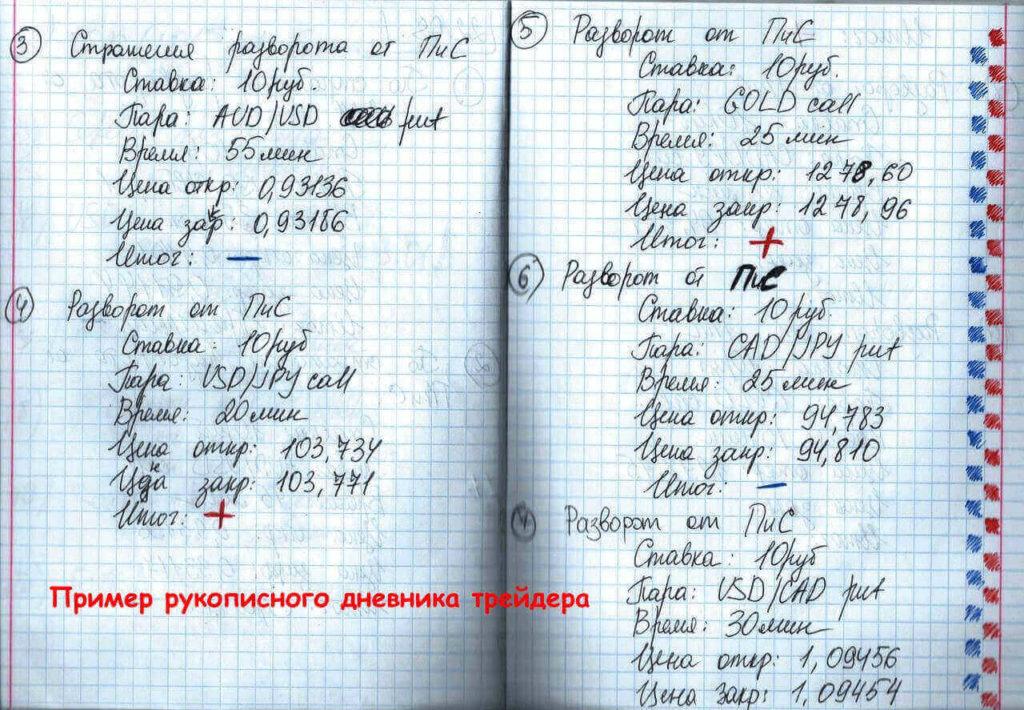 ③ Стратегия разворота от ПиС
Ставка: 10 руб.
Пара: AUD/USD put
Время: 55 мин
Цена откр: 0,93136
Цена закр: 0,93186
Итог: —
④ Разворот от ПиС
Ставка: 10 руб
Пара: USD/JPY call
Время: 20 мин
Цена откр: 103,734
Цена закр: 103,771
Итог: +
Пример рукописного дневника трейдера
⑤ Разворот от ПиС
Ставка: 10 руб.
Пара: GOLD call
Время: 25 мин
Цена откр: 1278,60
Цена закр: 1278,96
Итог: +
⑥ Разворот от ПиС
Ставка: 10 руб.
Пара: CAD/JPY put
Время: 25 мин
Цена откр: 94,783
Цена закр: 94,810
Итог: —
Разворот от ПиС
Ставка: 10 руб
Пара: USD/CAD put
Время: 30 мин
Цена откр: 1,09456
Цена закр: 1,09454